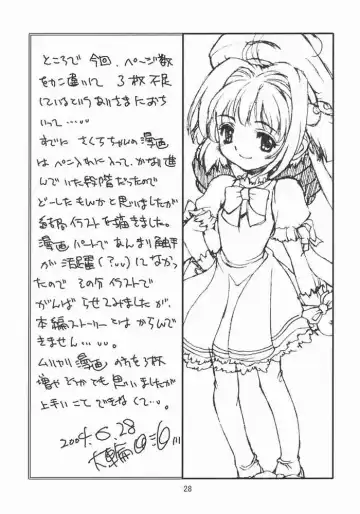 ところで今回、ページ数
をカン違いして 3枚不足
しているというありさまにおち
いって‥‥‥
すでに さくらちゃんの漫画
は ペン入れに入って、かなり進
んでいた段階だったので
どーしたもんかと思いましたが
結局イラストを描きました。
漫画パートで あんまり触手
が活躍(?‥)してなかっ
たので その分イラストで
がんばらせてみましたが、
本編ストーリーとは からんで
きません‥‥。
ムリヤリ漫画の方を3枚
増やそうかとも思いましたが
上手いことできなくて‥。
2004.6.28
28